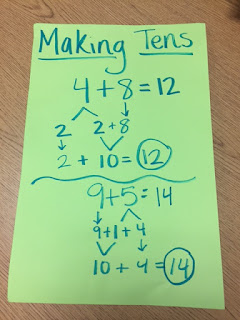 Making Tens
4 + 8 = 12
2 2 + 8
2 + 10 = 12
9 + 5 = 14
9 + 1 + 4
10 + 4 = 14